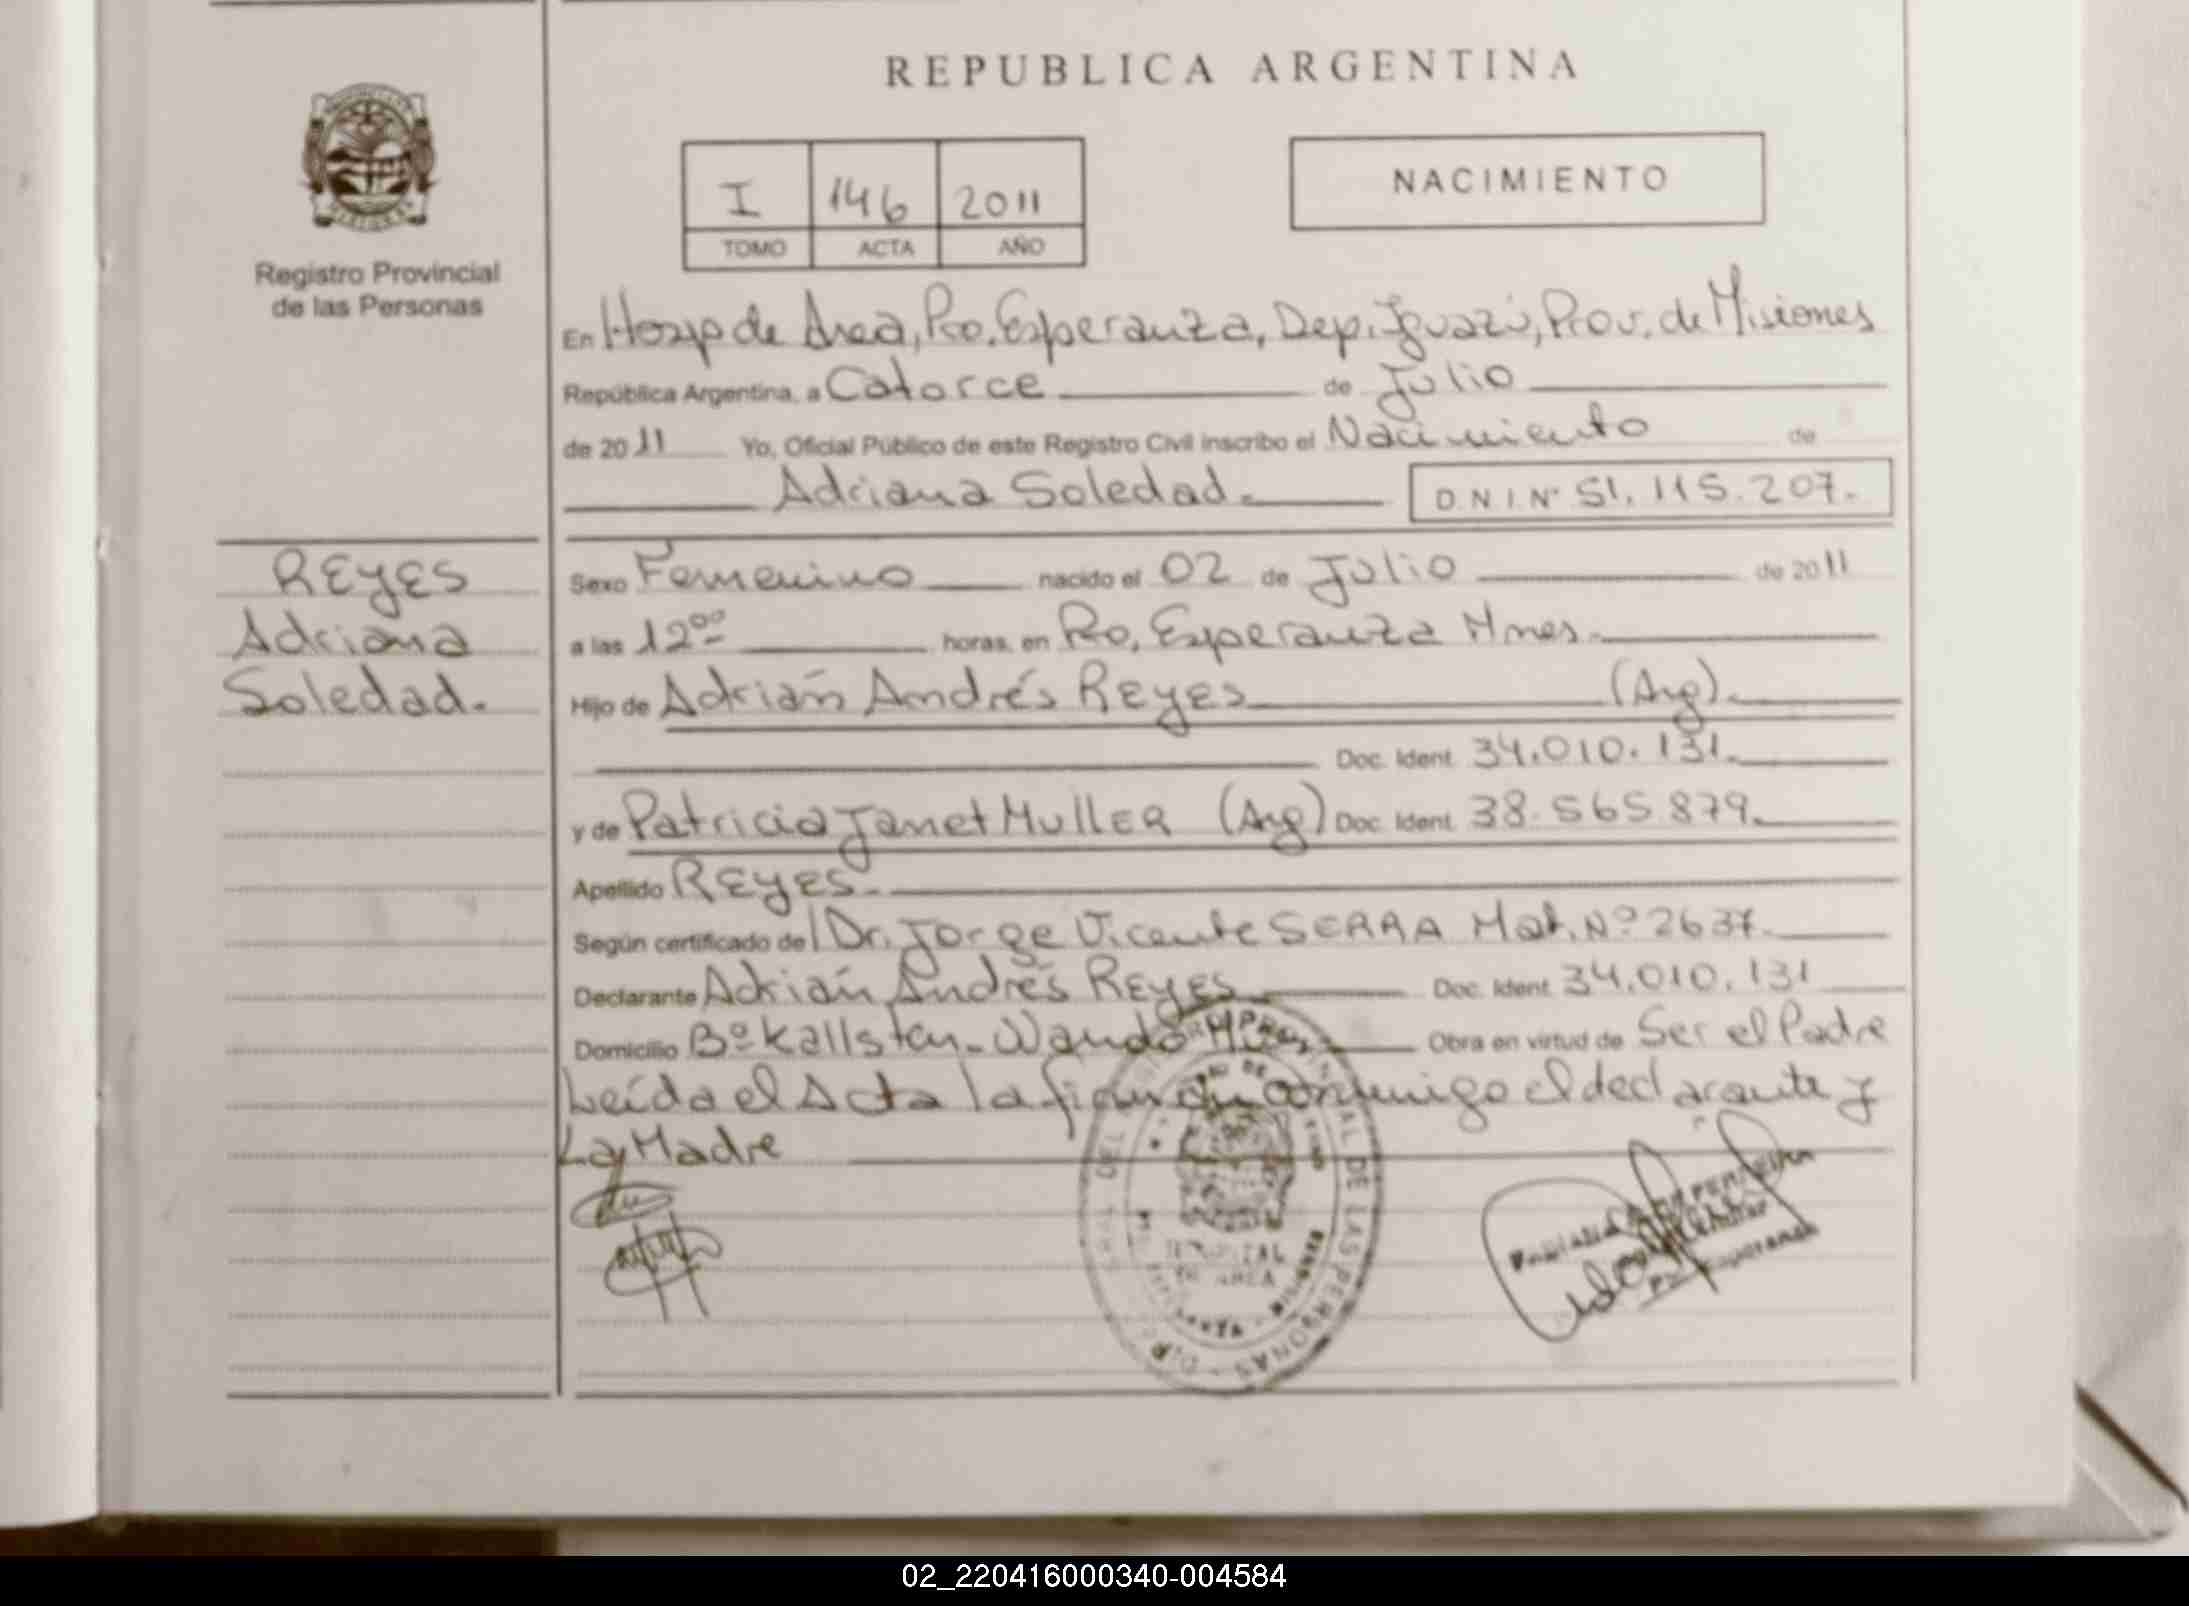 REPUBLICA ARGENTINA
Registro Provincial
de las Personas
I 146 2011
TOMO ACTA AÑO
NACIMIENTO
En Hosp de Area, Pto. Esperanza, Dep. Iguazú, Prov. de Misiones
República Argentina, a Catorce de Julio
de 2011 Yo, Oficial Público de este Registro Civil inscribo el Nacimiento de
Adriana Soledad.
D.N.I. Nº 51.115.207.
REYES
Adriana
Soledad.
Sexo Femenino nacido el 02 de Julio de 2011
a las 12ºº horas, en Pto, Esperanza Mnes.
Hijo de Adrián Andrés REYES (Arg).
Doc. Ident. 34.010.131.
y de Patricia Janet MULLER (Arg) Doc. Ident. 38.565.879.
Apellido REYES.
Según certificado del Dr. Jorge Vicente SERRA Mat. Nº 2637.
Declarante Adrián Andrés REYES Doc. Ident. 34.010.131
Domicilio Bº Kallsten - Wanda Obra en virtud de Ser el Padre
Leída el Acta la firman conmigo el declarante y
La Madre
DE LAS PERSONAS
HOSPITAL
DE AREA
02_220416000340-004584